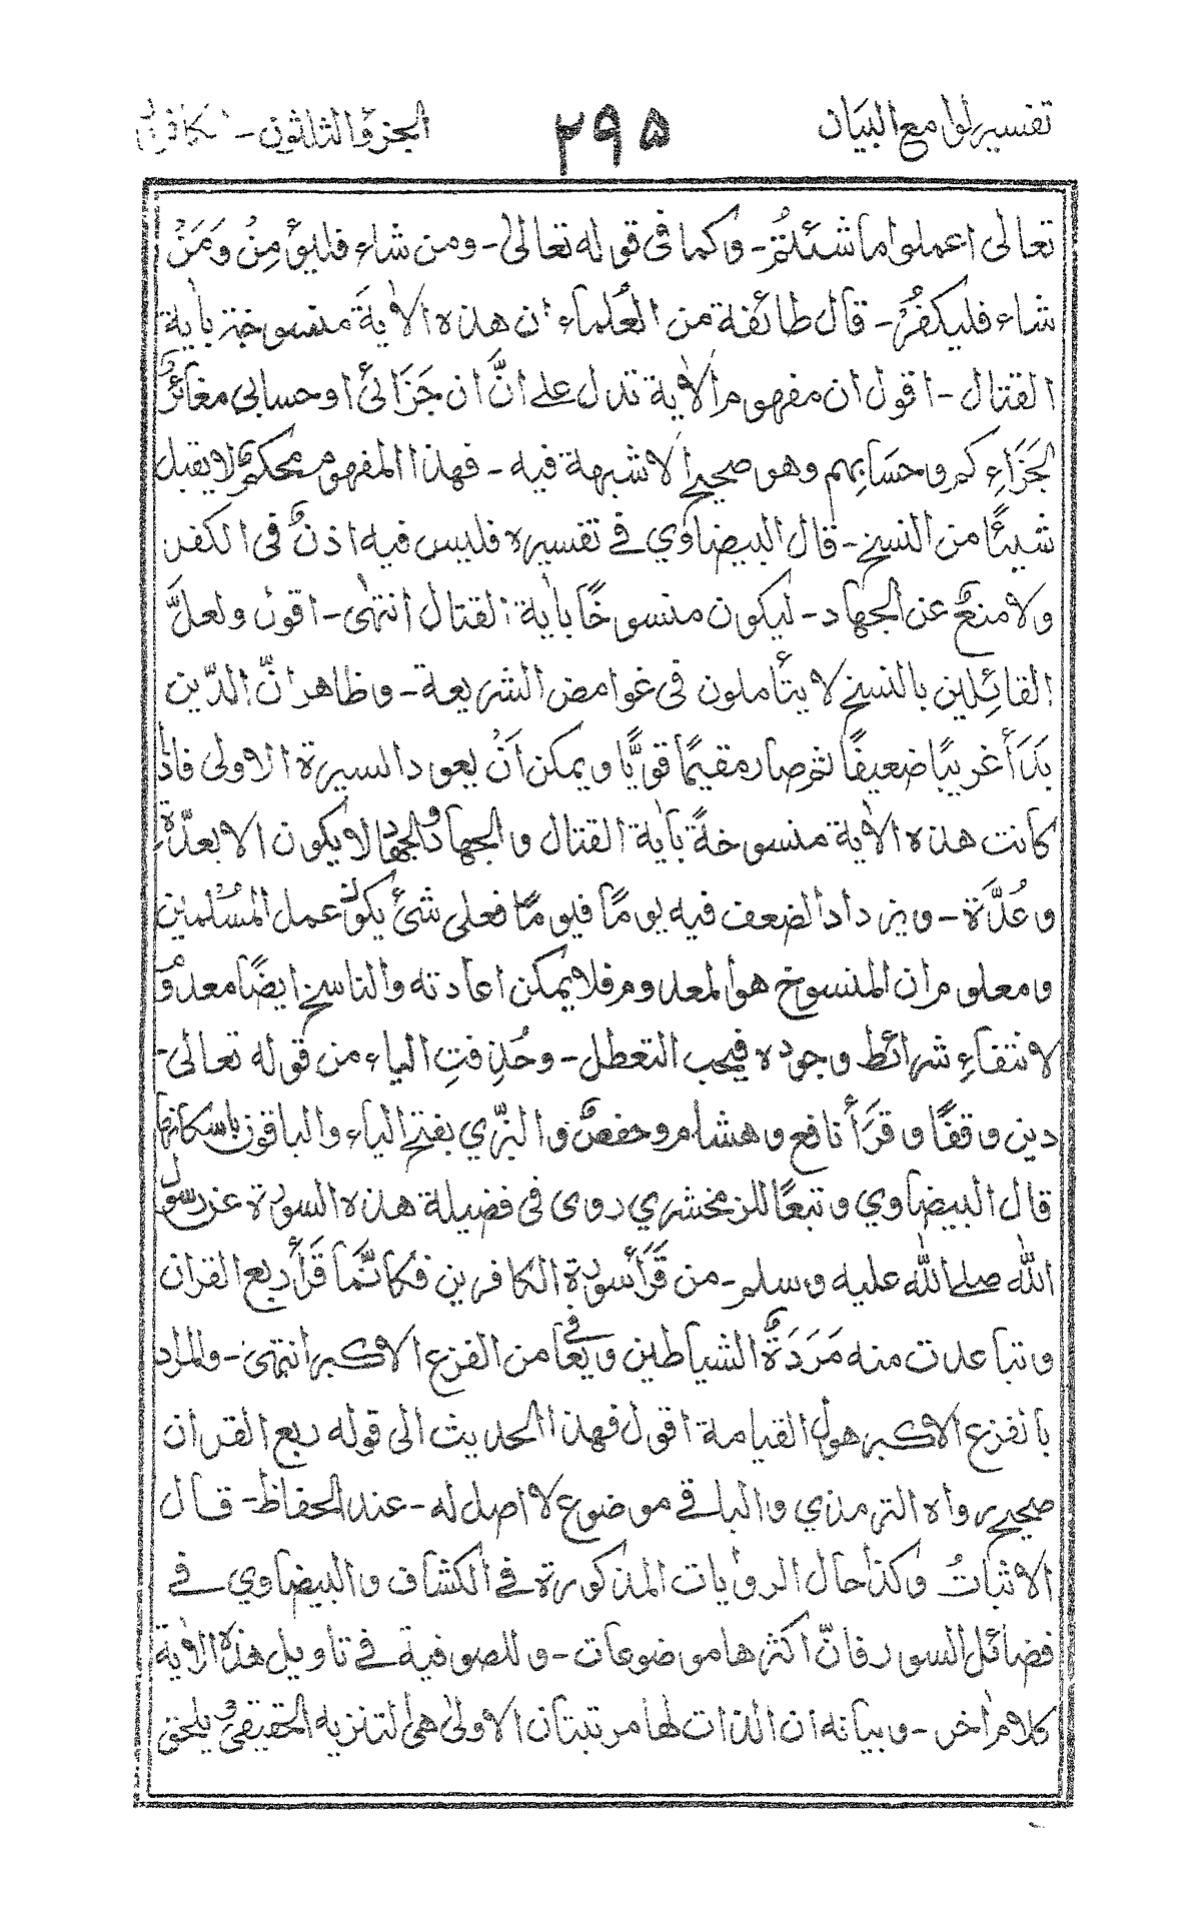 تفسير لوامع البيان ٢٩٥ الجزؤ الثلثون - الكافرون
تعالى اعملوا ما شئتُم - وكما فى قوله تعالىٰ - ومن شاء فليؤمِنُ وَمَنُ
شاء فليكفُرُ - قال طائفة من العُلماء ان هذه الاٰيةَ منسوختہ باٰية
القتال - اقول ان مفهوم الاٰية تدل على انَّ ان جَزَائىْ اوحسابى مغائرٌ
لجَزَاءِ كم وحسَابِهم وهو صحيح لا شبهة فيه - فهذا المفهوم محكمٌ لا يقبل
شيئًا من النسخ - قال البيضاوي في تفسيره فليس فيه اذنٌ فى الكفر
ولا منعٌ عن الجهاد - ليكون منسوخًا باٰية القتال انتهىٰ - اقول ولعلَّ
القائِلين بالنسخ لا يتأملون فى غوامض الشريعة - وظاهر انّ الدّين
بَدَأ غريبًا ضعيفًا ثم صار مقيمًا قويًّا ويمكن اَنُ يعود السيرة الاولى فاذا
كانت هذه الاٰية منسوخةً باٰية القتال والجهاد والجهاد لا يكون الا بعدّةٍ
وعُدَّة - ويزداد الضعف فيه يومًا فيومًا فعلى شئ يكون عمل المسُلمين
ومعلوم ان المنسوخ هوالمعدوم فلا يمكن اعادته والناسخ ايضًا معدومٌ
لانتقاءِ شرائط وجوده فيجب التعطل - وحُذِفتِ الياء من قوله تعالى -
دين وقفًا وقَرَأ نافع وهشام وحفصٌ والبزّي بفتح الياء والباقون باسكانها
قال البيضاوي وتبعًا للزمخشري روى فى فضيلة هذه السورة عن رسول
اللّٰه صلى اللّٰه عليه وسلم - من قَرَأ سورة الكافرين فكانّمَا قَرَأ ربع القران
وتباعدت منه مَرَدَةٌ الشياطين ويعافى من الفزع الاكبر انتهىٰ - والمراد
بالفزع الاكبر هول القيامة اقول فهذا الحديث الى قوله ربع القران
صحيح رواه الترمذي والباقي موضوع لا اصل له - عند الحفاظ - قال
الاثباتُ وكذا حال الروايات المذكورة في الكشاف والبيضاوي في
فضائل السور فانّ اكثرها موضوعات - وللصوفية في تاويل هذه الاٰية
كلام اٰخر - وبيانه ان الذات لها مرتبتان الاولىٰ هى التنزيه الحقيقىُّ يلحق